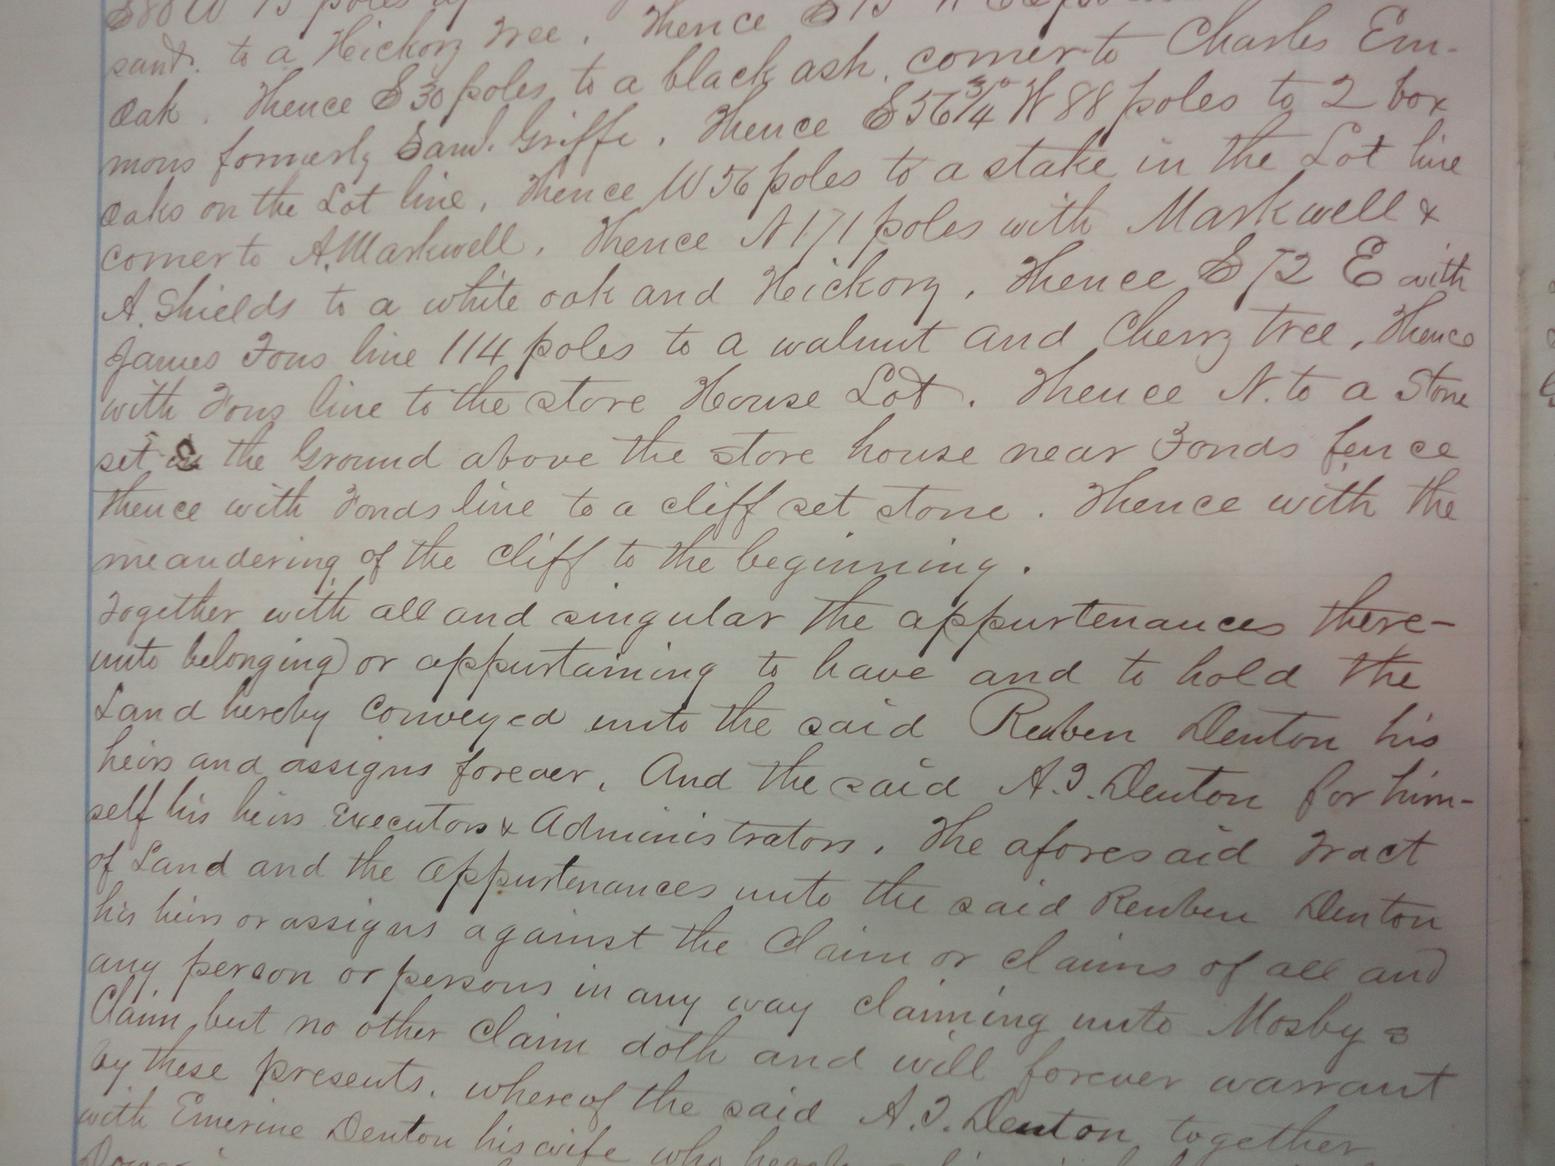 S80W 75 poles
sand. to a Hickory Tree. Thence S 75 W
Oak. Thence S 30 poles to a black ash, corner to Charles Em-
mons formerly Saml. Griffe. Thence S 56 3/4° W 88 poles to 2 box
oaks on the Lot line, Thence W 56 poles to a stake in the Lot line
corner to A. Markwell. Thence N 171 poles with Markwell &
A. Shields to a white oak and Hickory. Thence S 72 E with
James Fons line 114 poles to a walnut and Cherry tree, Thence
with Fons line to the store House Lot. Thence N. to a Stone
set in the Ground above the store house near Fonds fence
thence with Fonds line to a cliff set stone. Thence with the
meandering of the cliff to the beginning.
Together with all and singular the appurtenances there-
unto belonging or appurtaining to have and to hold the
Land hereby Conveyed unto the said Reuben Denton his
heirs and assigns forever. And the said A. J. Denton for him-
self his heirs Executors & Administrators. The aforesaid Tract
of Land and the Appurtenances unto the said Reuben Denton
his heirs or assigns against the Claim or claims of all and
any person or persons in any way claiming unto Mosby s
Claim, but no other Claim doth and will forever warrant
by these presents. whereof the said A. J. Denton, together
with Emerine Denton his wife who